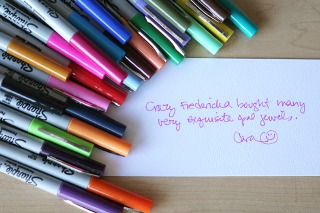 Crazy Fredericka bought many
very exquisite opal jewels.
Cara
Sharpie
Sharpie
Sharpie
Sharpie
Sharpie